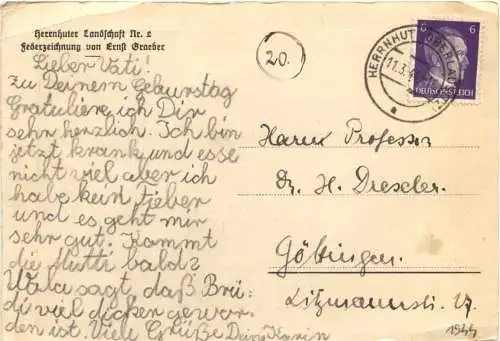 Herrnhuter Landschaft Nr. 2
Federzeichnung von Ernst Graeber
Lieber Vati!
zu Deinem Geburstag
Gratuliere ich Dir
sehr herzlich. Ich bin
jetzt krank und esse
nicht viel aber ich
habe kein Fieber
und es geht mir
sehr gut. Kommt
die Mutti bald?
sagt, daß Brü-
di viel dicker gewor-
den ist. Viele Grüße Deine Karin
20.
HERRNHUT (OBERLAUS
11.3.4
6 6
DEUTSCHES REICH
Herrn Professor
Dr. H. Drexler.
Göttingen.
Litzmannstr. 17.
1944